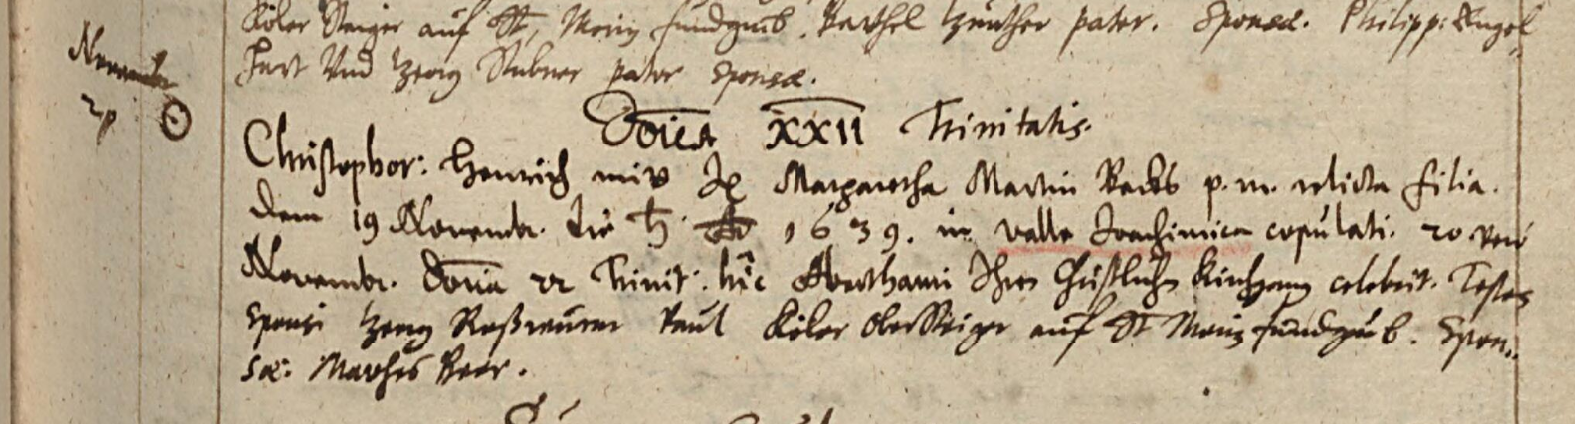 Köler Steiger auf St, Moritz fundgrub. Barthel Günther pater. Sponsæ. Philipp: Engel
hart Vnd Georg Stubner pater Sponsæ.
Novembr
20 ☉
Doīca XXII Trinitatis.
Christophor: Henrich mit J Margaretha Martin Becks p. m. relicta filia.
dem 19 Novembr. die ♄. 1639. in valle Joachimica copulati. 20 vero
Novembr. Doīca 22 Trinit. hîc Aberthami Ihren Christlichen Kirchgang celebrit. Testes
Sponsi Georg Paul Köler OberSteiger auf St Moritz fundgrub. Spon,,
sæ: Mathes Beer.